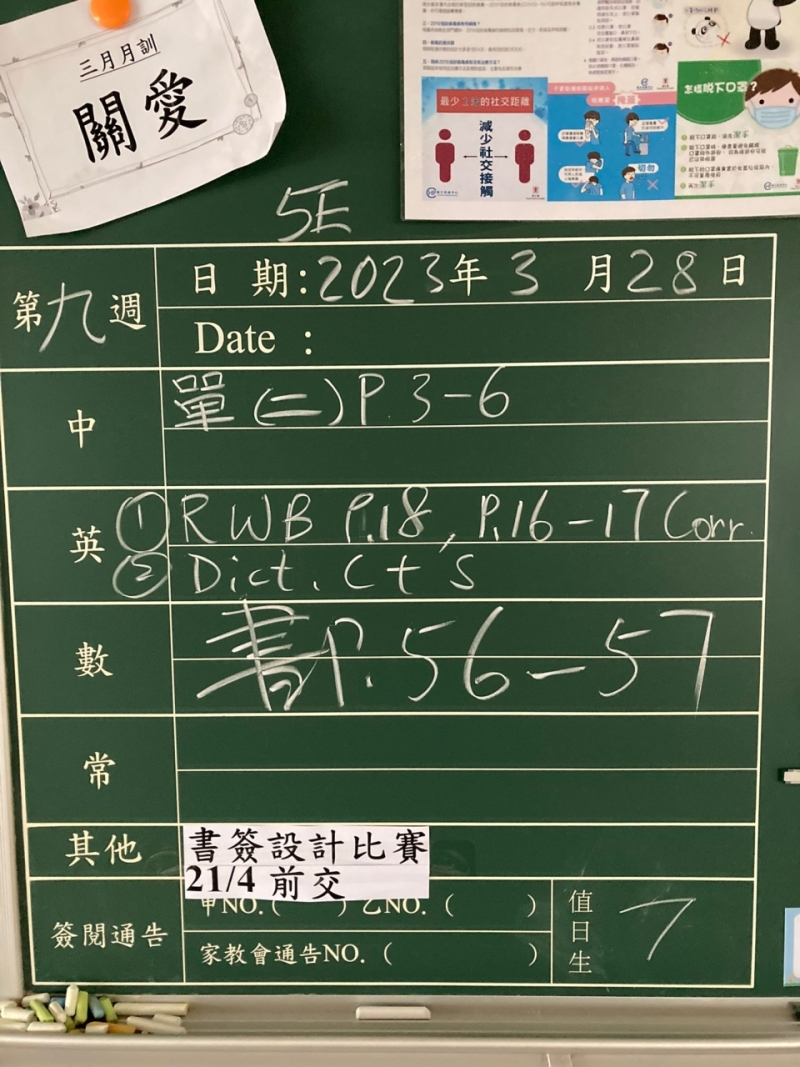 三月月訓
關愛
最少1米的社交距離
減少社交接觸
切勿
怎樣脫下口罩？
5E
第九週
日 期：2023年3月28日
Date ：
中
單(二)P.3-6
英
① RWB P.18, P.16-17 Corr.
② Dict. Ct's
數
書P.56-57
常
其他
書簽設計比賽
21/4 前交
簽閱通告
甲NO.( ) 乙NO.( )
家教會通告NO.( )
值日生
7